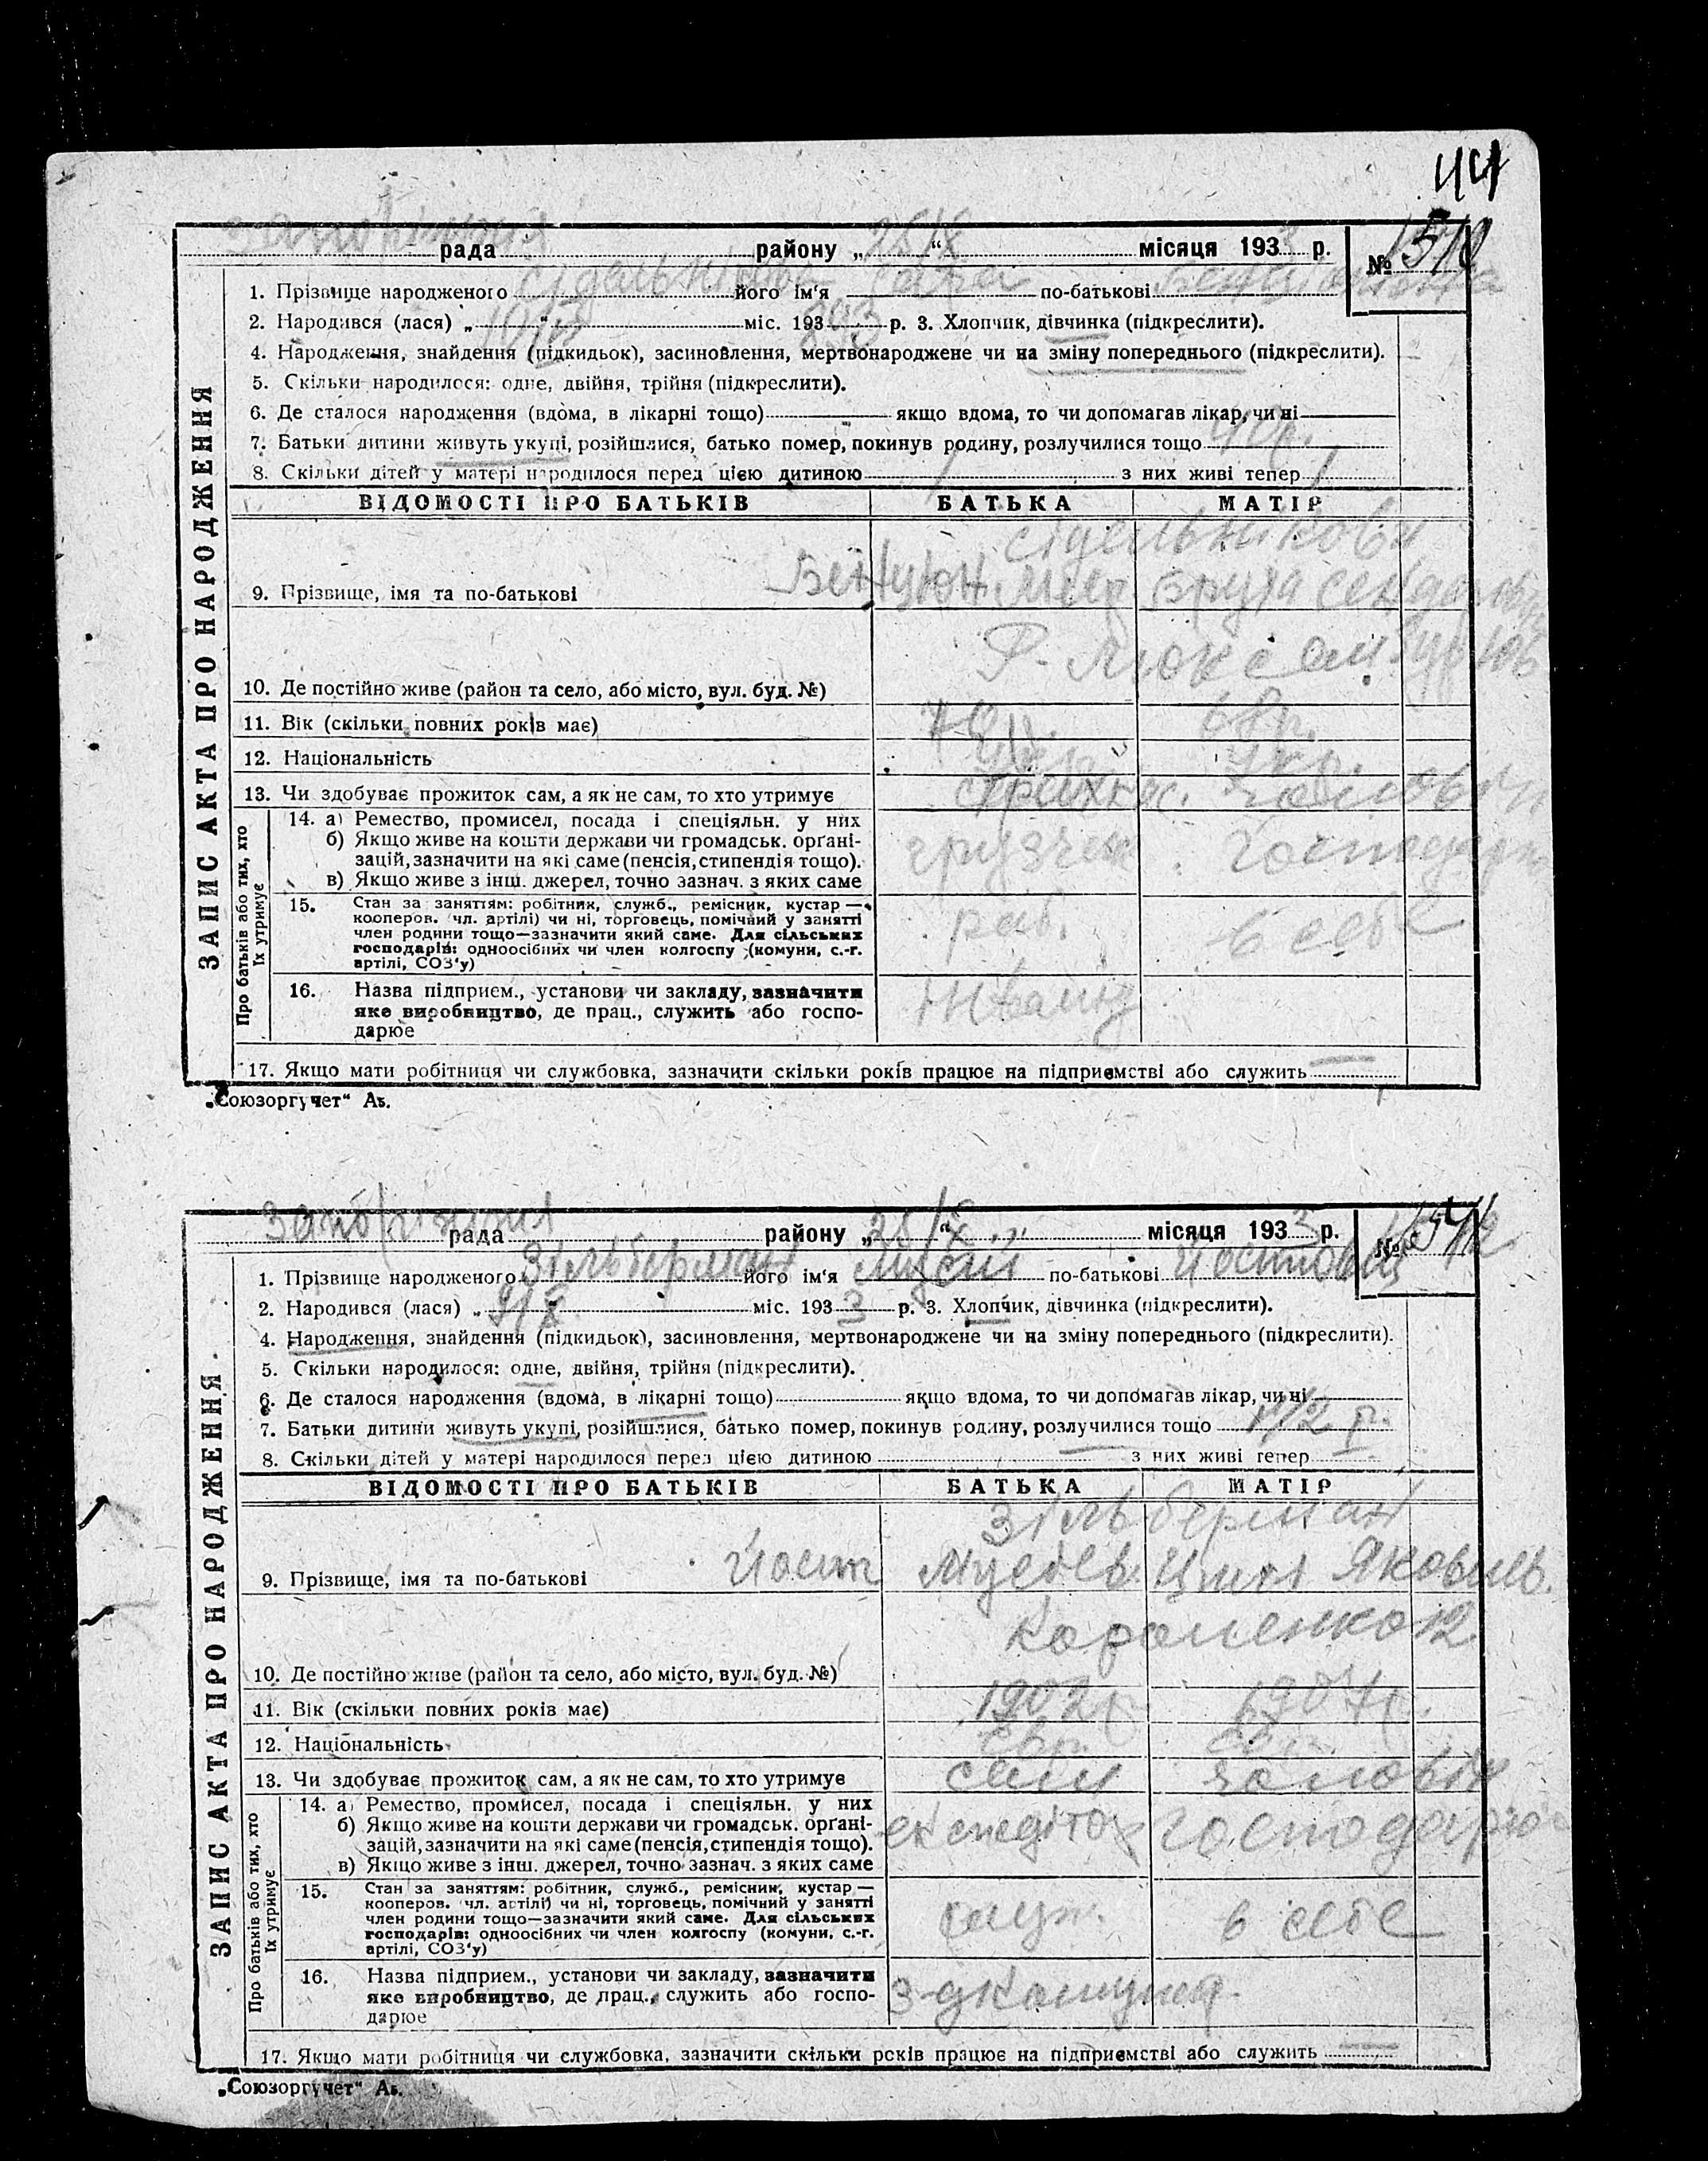 44
Запоріжжя рада району „25/X“ місяця 1933 р. №
1. Прізвище народженого його ім'я Сара по-батькові Бенціонівна
2. Народився (лася) „ “ міс. 193 р. 3. Хлопчик, дівчинка (підкреслити).
4. Народження, знайдення (підкидьок), засиновлення, мертвонароджене чи на зміну попереднього (підкреслити).
5. Скільки народилося: одне, двійня, трійня (підкреслити).
6. Де сталося народження (вдома, в лікарні тощо) якщо вдома, то чи допомагав лікар, чи ні
7. Батьки дитини живуть укупі, розійшлися, батько помер, покинув родину, розлучилися тощо
8. Скільки дітей у матері народилося перед цією дитиною 1 з них живі тепер 1
ЗАПИС АКТА ПРО НАРОДЖЕННЯ
ВІДОМОСТІ ПРО БАТЬКІВ БАТЬКА МАТІР
Сідельникови
9. Прізвище, імя та по-батькові Бенціон
10. Де постійно живе (район та село, або місто, вул. буд. №) Р. Люксембург
11. Вік (скільки повних років має) 68р.
12. Національність
13. Чи здобуває прожиток сам, а як не сам, то хто утримує
Про батьків або тих, хто їх утримує
14. а) Ремество, промисел, посада і спеціяльн. у них
б) Якщо живе на кошти держави чи громадськ. органі-
зацій, зазначити на які саме (пенсія, стипендія тощо).
в) Якщо живе з інш. джерел, точно зазнач. з яких саме
15. Стан за заняттям: робітник, служб., ремісник, кустар—
кооперов. чл. артілі) чи ні, торговець, помічний у занятті
член родини тощо—зазначити який саме. Для сільських
господарів: одноосібних чи член колгоспу (комуни, с.-г.
артілі, СОЗ'у)
роб. в себе
16. Назва підприєм., установи чи закладу, зазначити
яке виробництво, де прац., служить або госпо-
дарює
17. Якщо мати робітниця чи службовка, зазначити скільки років працює на підприємстві або служить —
„Союзоргучет“ Аз.
Запоріжжя рада району „25/X“ місяця 1933 р. №
1. Прізвище народженого Зільберман його ім'я Мусій по-батькові Йостович
2. Народився (лася) „9/X“ міс. 1933 р. 3. Хлопчик, дівчинка (підкреслити).
4. Народження, знайдення (підкидьок), засиновлення, мертвонароджене чи на зміну попереднього (підкреслити).
5. Скільки народилося: одне, двійня, трійня (підкреслити).
6. Де сталося народження (вдома, в лікарні тощо) якщо вдома, то чи допомагав лікар, чи ні
7. Батьки дитини живуть укупі, розійшлися, батько помер, покинув родину, розлучилися тощо
8. Скільки дітей у матері народилося перед цією дитиною — з них живі тепер —
ЗАПИС АКТА ПРО НАРОДЖЕННЯ
ВІДОМОСТІ ПРО БАТЬКІВ БАТЬКА МАТІР
Зільберман
9. Прізвище, імя та по-батькові Йост Мусіев.
10. Де постійно живе (район та село, або місто, вул. буд. №) Короленко 12
11. Вік (скільки повних років має) 1902р 1907р.
12. Національність Евр. Евр.
13. Чи здобуває прожиток сам, а як не сам, то хто утримує сам чоловік
Про батьків або тих, хто їх утримує
14. а) Ремество, промисел, посада і спеціяльн. у них
б) Якщо живе на кошти держави чи громадськ. органі-
зацій, зазначити на які саме (пенсія, стипендія тощо).
експедітор господарює
в) Якщо живе з інш. джерел, точно зазнач. з яких саме
15. Стан за заняттям: робітник, служб., ремісник, кустар—
кооперов. чл. артілі) чи ні, торговець, помічний у занятті
член родини тощо—зазначити який саме. Для сільських
господарів: одноосібних чи член колгоспу (комуни, с.-г.
артілі, СОЗ'у)
служ. в себе
16. Назва підприєм., установи чи закладу, зазначити
яке виробництво, де прац., служить або госпо-
дарює
17. Якщо мати робітниця чи службовка, зазначити скільки років працює на підприємстві або служить —
„Союзоргучет“ Аз.